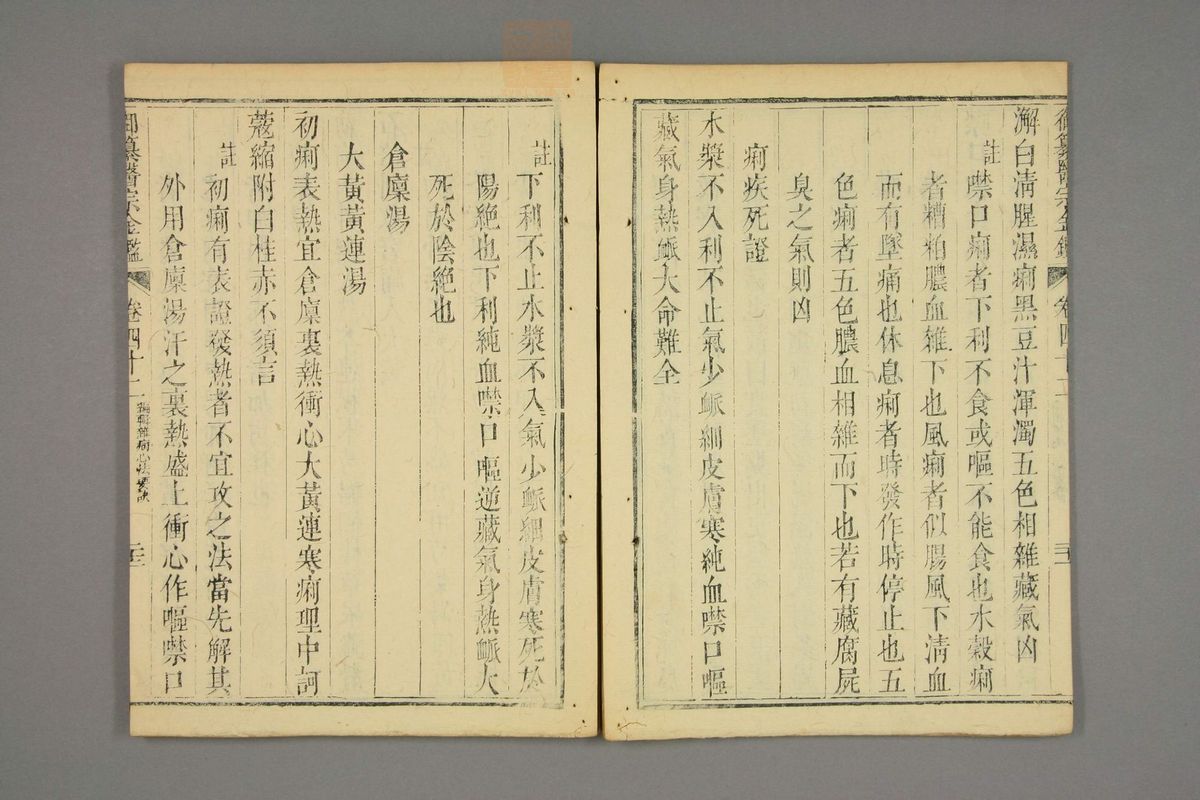 御纂醫宗金鑑 卷四十一
澥白清腥濕痢黑豆汁渾濁五色相雜藏氣凶
註 噤口痢者下利不食或嘔不能食也水穀痢
者糟粕膿血雜下也風痢者似腸風下清血
而有墜痛也休息痢者時發作時停止也五
色痢者五色膿血相雜而下也若有藏腐屍
臭之氣則凶
痢疾死證
水漿不入利不止氣少脈細皮膚寒純血噤口嘔
藏氣身熱脈大命難全
註 下利不止水漿不入氣少脈細皮膚寒死於
陽絕也下利純血噤口嘔逆藏氣身熱脈大
死於陰絕也
倉廩湯
大黃黃連湯
初痢表熱宜倉廩裏熱衝心大黃連寒痢理中訶
蔻縮附白桂赤不須言
註 初痢有表證發熱者不宜攻之法當先解其
外用倉廩湯汗之裏熱盛上衝心作嘔噤口
御纂醫宗金鑑 卷四十一 編輯雜病心法要訣